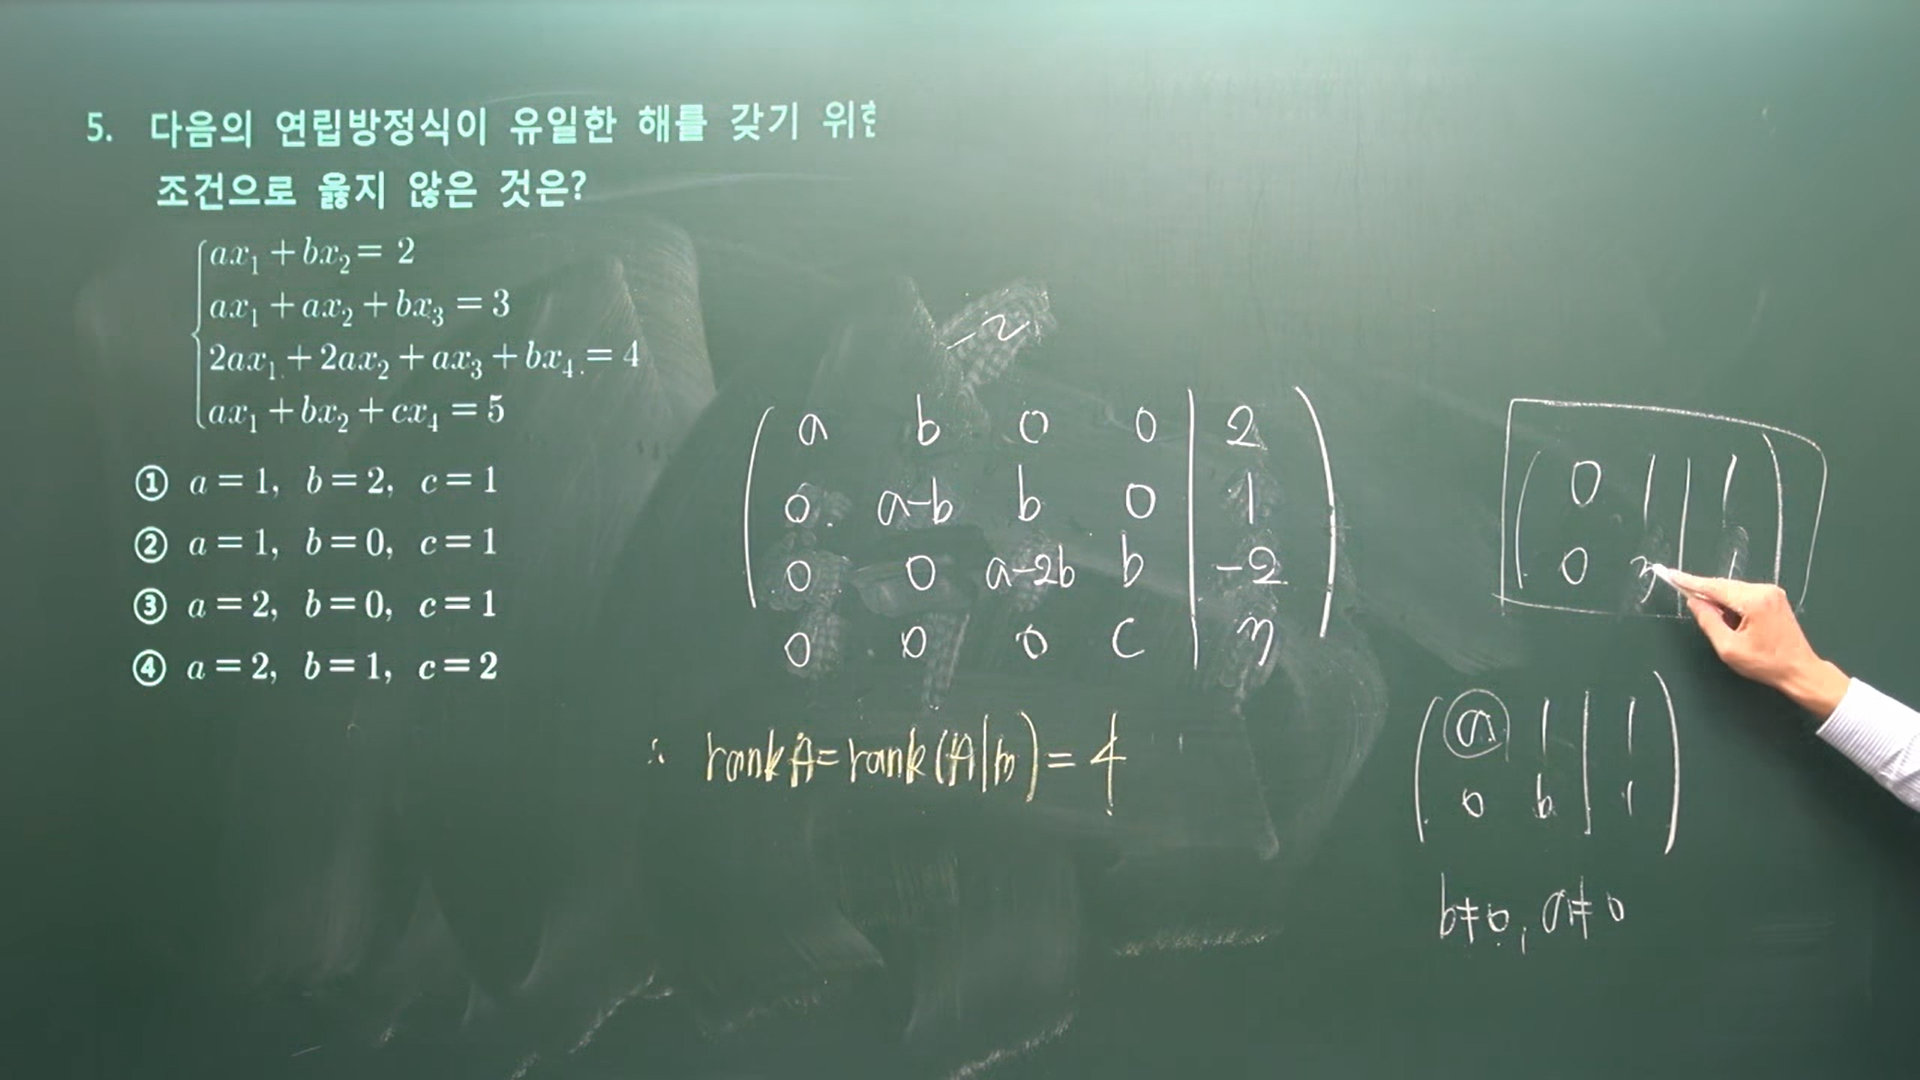 5. 다음의 연립방정식이 유일한 해를 갖기 위한
조건으로 옳지 않은 것은?
ax₁ + bx₂ = 2
ax₁ + ax₂ + bx₃ = 3
2ax₁ + 2ax₂ + ax₃ + bx₄ = 4
ax₁ + bx₂ + cx₄ = 5
① a = 1, b = 2, c = 1
② a = 1, b = 0, c = 1
③ a = 2, b = 0, c = 1
④ a = 2, b = 1, c = 2
-2
a b 0 0 | 2
0 a-b b 0 | 1
0 0 a-2b b | -2
0 0 0 c | 3
∴ rank A = rank(A|b) = 4
0 1 | 1
0 3 | 1
a 1 | 1
0 b | 1
b≠0, a≠0